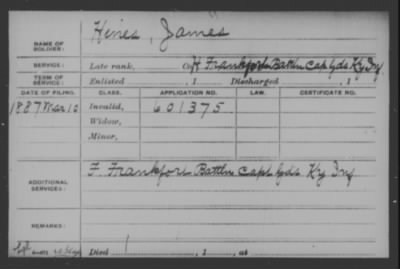 NAME OF SOLDIER: Hines, James
SERVICE: Late rank, Co H Frankfort Battln Cap Gds Ky Inf
TERM OF SERVICE: Enlisted , 1 Discharged , 1
DATE OF FILING. CLASS. APPLICATION NO. LAW. CERTIFICATE NO.
1887 Mar 10 Invalid, 601375
Widow,
Minor,
ADDITIONAL SERVICES: F. Frankfort Battln Capl Gds Ky Inf
REMARKS:
Died , 1 , at